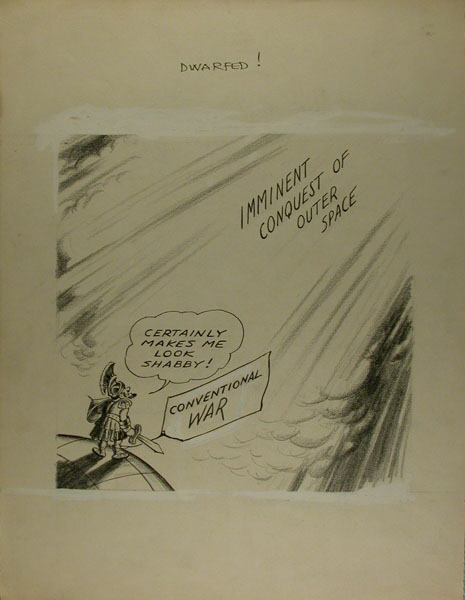 DWARFED!
IMMINENT
CONQUEST OF
OUTER
SPACE
CERTAINLY
MAKES ME
LOOK
SHABBY!
CONVENTIONAL
WAR